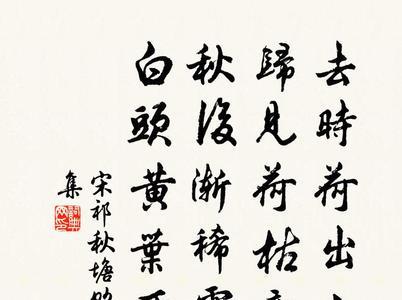 去時荷出
歸見荷枯
秋後漸稀
白頭黃葉
宋祁秋塘
集